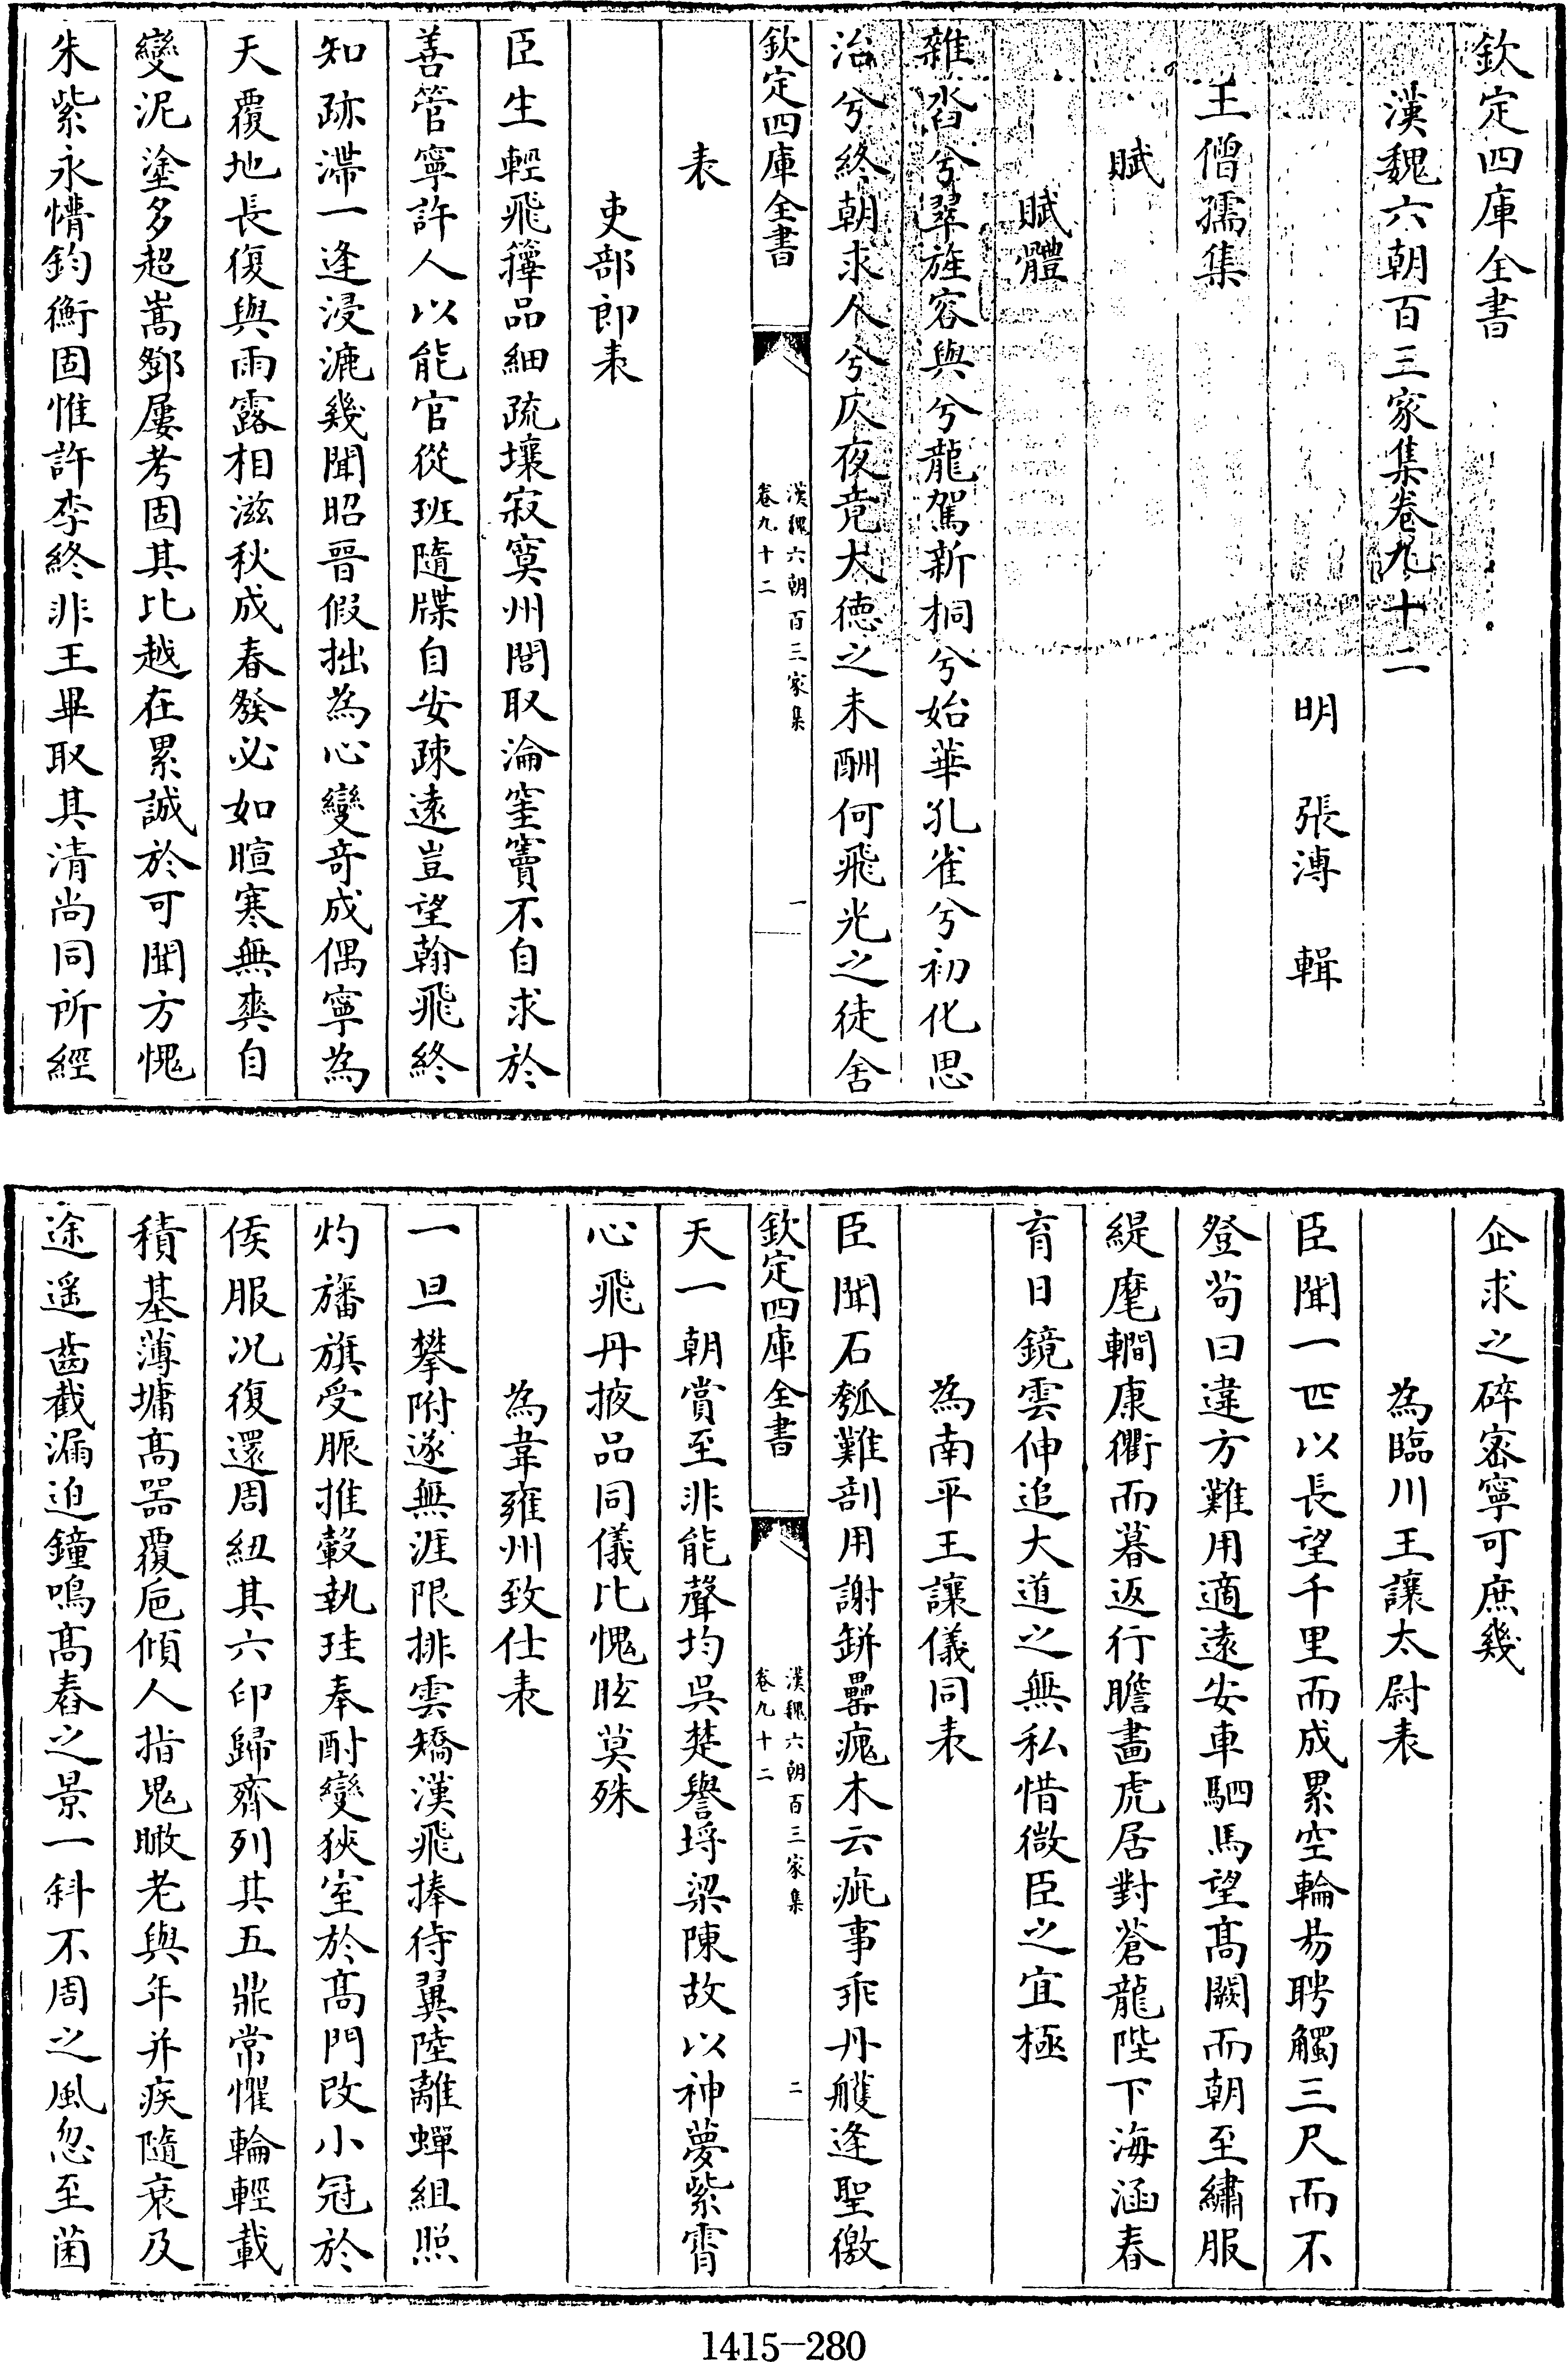 欽定四庫全書
漢魏六朝百三家集卷九十二
明　張溥　輯
王僧孺集
賦
賦體
雜沓兮翠旌容與兮龍駕新桐兮始華孔雀兮初化思
治兮終朝求人兮仄夜竟大德之未酬何飛光之徒舍
欽定四庫全書
漢魏六朝百三家集
卷九十二
一
表
吏部郎表
臣生輕飛籜品細疏壤寂寞州閭取淪窐竇不自求於
善管寧許人以能官從班隨牒自安疎遠豈望翰飛終
知跡滯一逢浸漉幾聞昭晉假拙為心變奇成偶寧為
天覆地長復與雨露相滋秋成春發必如暄寒無爽自
變泥塗多超嵩鄧屢考固其比越在累誠於可聞方愧
朱紫永懵鈞衡固惟許李終非王畢取其清尚同所經
企求之碎密寧可庶幾
為臨川王讓太尉表
臣聞一匹以長望千里而成累空輪易聘觸三尺而不
登茍曰違方難用適遠安車駟馬望髙闕而朝至繡服
緹麾轥康衢而暮返行瞻畫虎居對蒼龍陛下海涵春
育日鏡雲伸追大道之無私惜微臣之宜極
為南平王讓儀同表
臣聞石瓠難剖用謝缾罍瘣木云疵事乖丹艧逢聖徼
欽定四庫全書
漢魏六朝百三家集
卷九十二
二
天一朝賞至非能聲均吳楚譽埒梁陳故以神夢紫霄
心飛丹掖品同儀比愧眩莫殊
為韋雍州致仕表
一旦攀附遂無涯限排雲矯漢飛捧待翼陸離蟬組照
灼旛旗受脤推轂執珪奉酎變狹室於髙門改小冠於
侯服况復還周紐其六印歸齊列其五鼎常懼輪輕載
積基薄墉髙器覆巵傾人指鬼瞰老與年并疾隨衰及
途遥齒截漏迫鐘鳴髙舂之景一斜不周之風忽至菌
1415-280